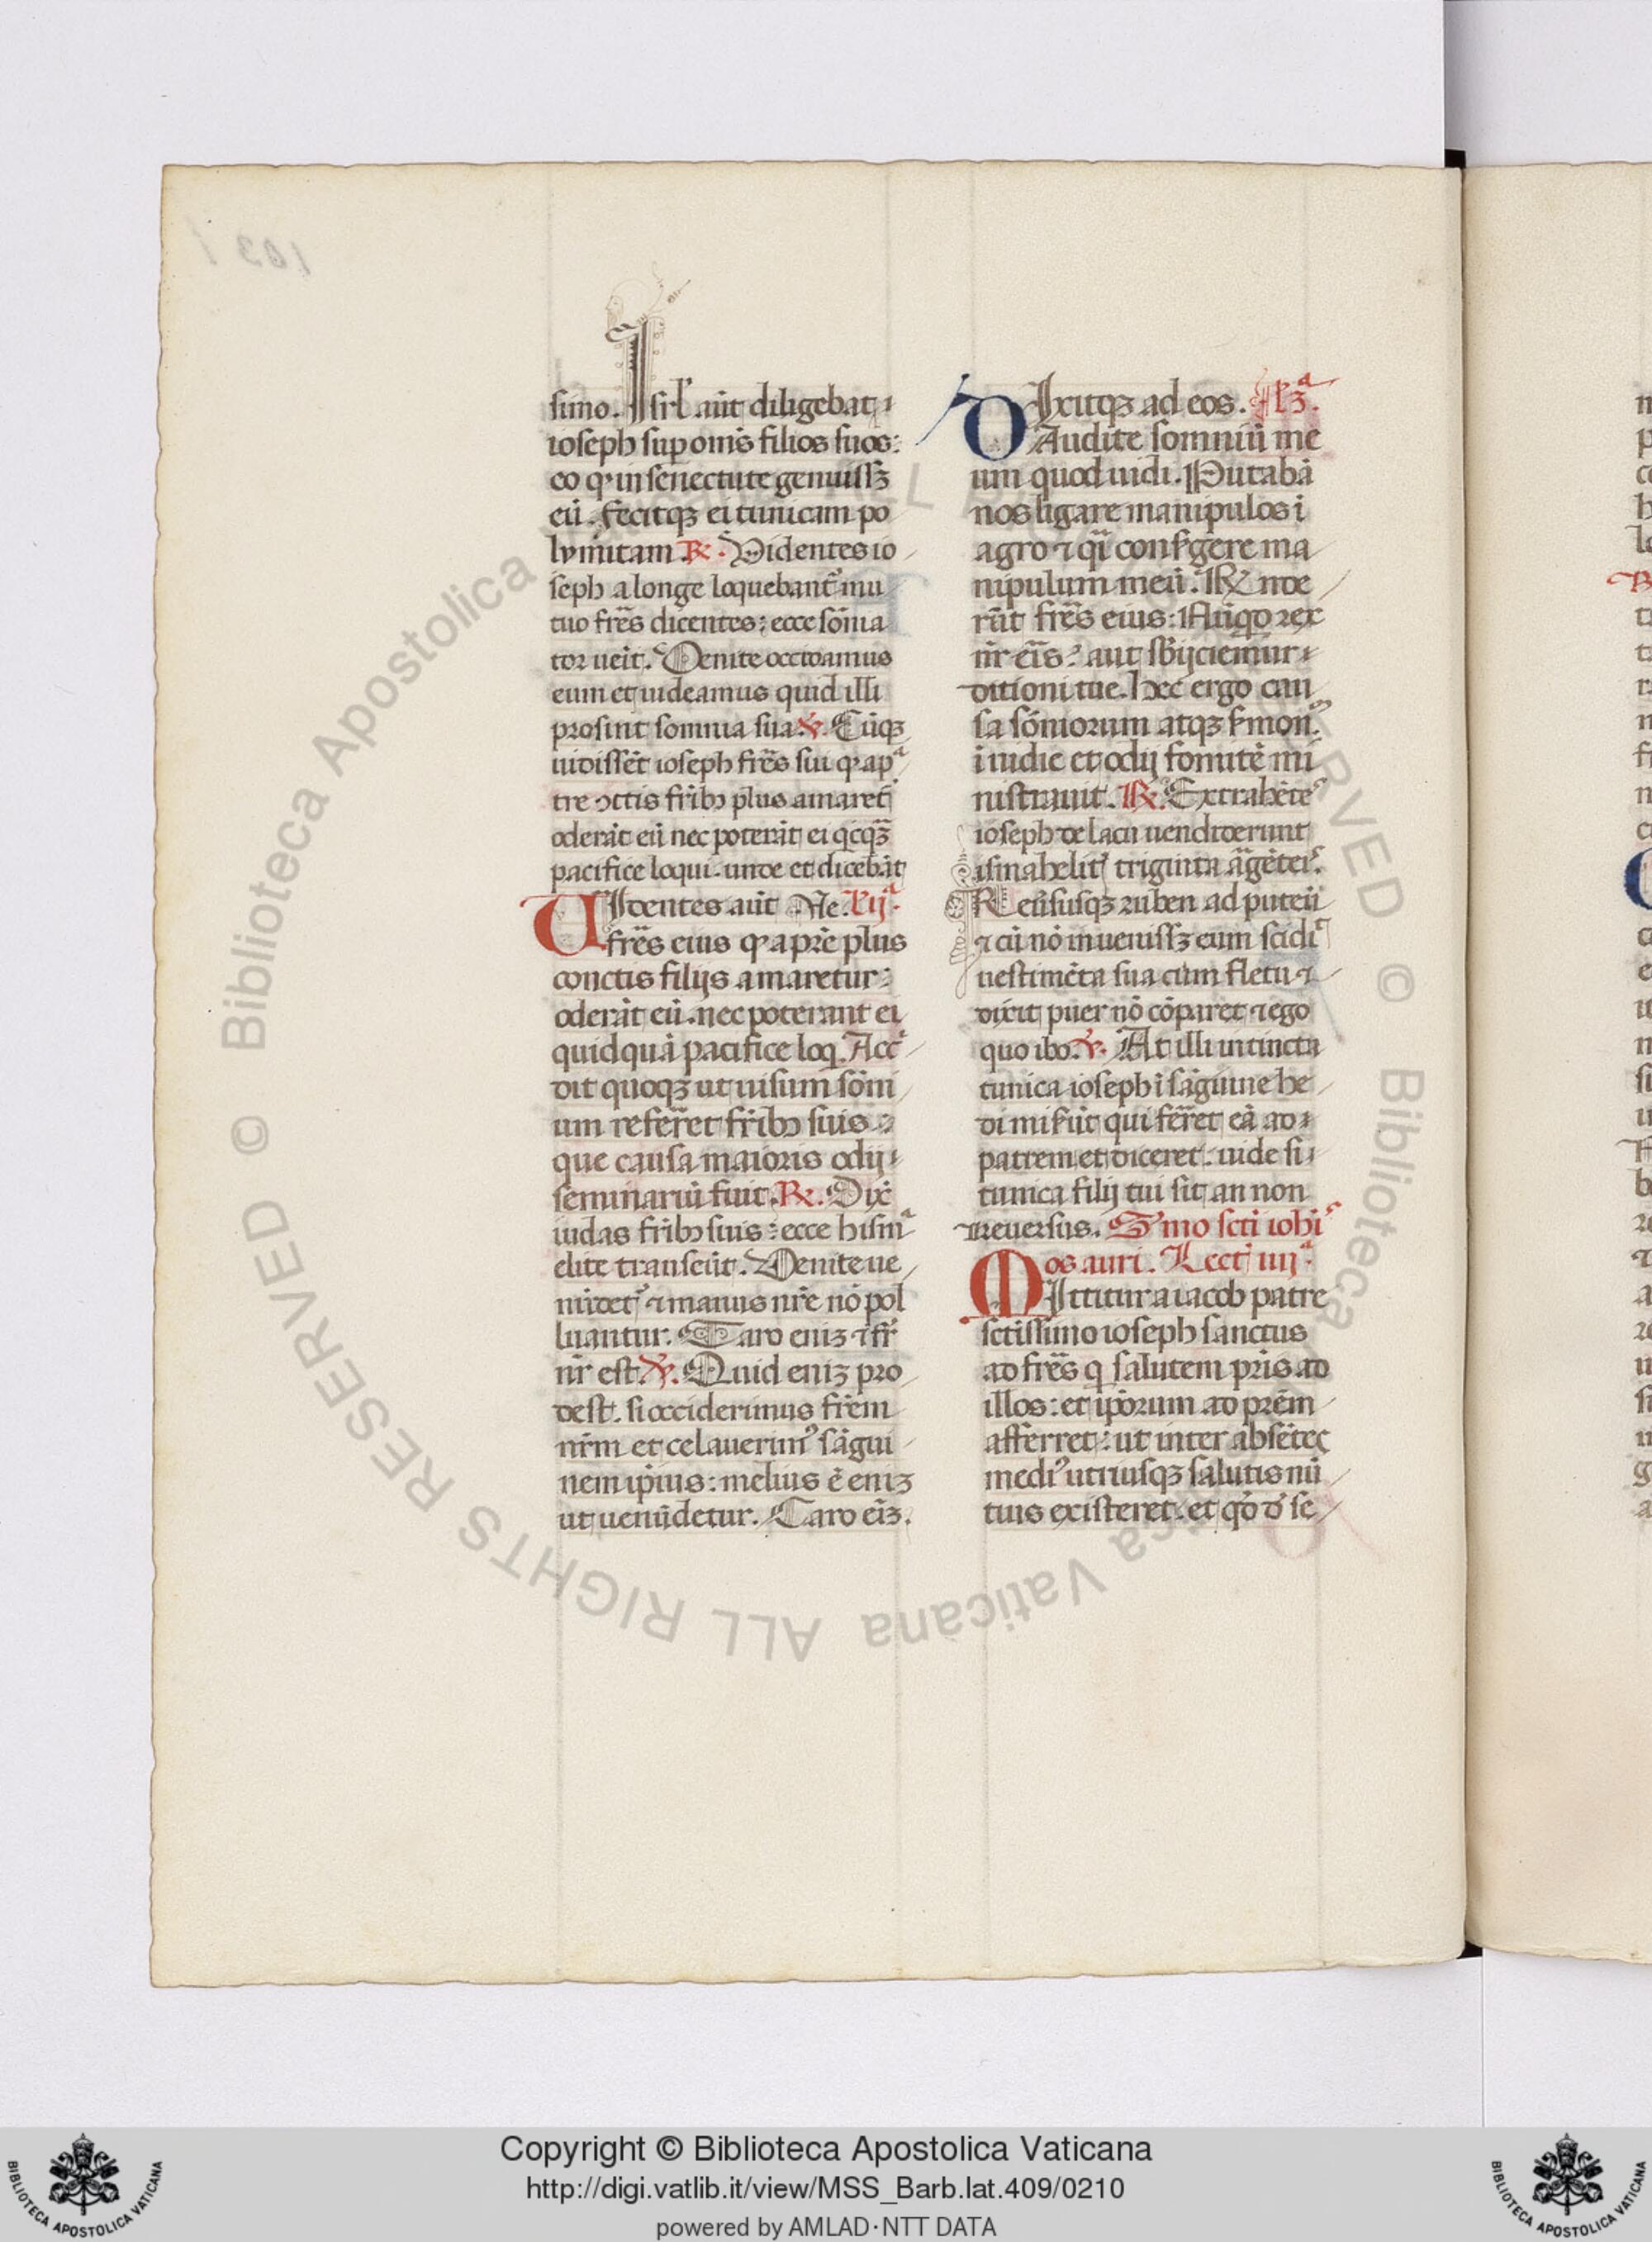 simo. Isrl̄ aūt diligebat
ioseph sup om̄s filios suos:
eo ꝙ in senectute genuissꝫ
eū. fecitqꝫ ei tunicam po
lymitam ℟. Videntes io
seph a longe loquebant᷑ mu
tuo fr̄es dicentes: ecce sōnia
tor ueīt. Venite occidamus
eum et uideamus quid illi
prosint somnia sua ℣. Cūqꝫ
uidissēt ioseph fr̄es sui ꝙ a pᵃ
tre ↄctis fr̄ibꝫ plus amaret᷑
oderāt eū nec poterāt ei qͥcqꝫ̄
pacifice loqui. unde et dicebāt
VIdentes aūt Ve. Lij.ᵃ
fr̄es eius ꝙ a pr̄e plus
conctis filijs amaretur:
oderāt eū. nec poterant ei
quidquā pacifice loq. Accͥ
dit quoqꝫ ut uisum sōni
um referr̄et fr̄ibꝫ suis:
que causa maioris odij
seminariū fuit. ℟. Dix̄
iudas fr̄ibꝫ suis: ecce hismᵃ
elite transeūt. Venite ue
nūdet᷑ ⁊ manus nr̄e nō pol
luantur. Caro eniꝫ ⁊ fr̄
nr̄ est. ℣. Quid eniꝫ pro
dest. si occiderimus fr̄em
nr̄m et celauerimꝰ sāgui
nem ip̄ius: melius ē eniꝫ
ut uenūdetur. Caro eīꝫ.
DIxitqꝫ ad eos. Lꝫ̄ᵃ.
Audite somniū me
um quod uidi. Putabā
nos ligare manipulos ī
agro ⁊ qͣi consꝰgere ma
nipulum meū. Rx̄ nde
rūt fr̄es eius: Nūqͥd rex
nr̄ eīs? aut sb̄ijciemur
ditioni tue. hec ergo cau
sa sōniorum atqꝫ sꝰmonꝫ
īuidie et odij fomitē mi
nistrauit. ℟. Extrahētēs
ioseph de lacu uendiderunt
ismahelitꝫ triginta āgēteis.
Reūsusqꝫ ruben ad puteū
⁊ cū nō inuenissꝫ eum scidͥt
uestimēta sua cum fletu ⁊
dixit puer nō cōparet ⁊ ego
quo ibo. ℣. At illi intincta
tunica ioseph ī sāguine he
di misꝰūt qui ferr̄et eā ad
patrem et diceret. uide si
tunica filij tui sit an non
Reuersus. Sꝰmo scti iohīs
os auri. Lect iiijᵃ.
MIttitur a iacob patre
sctissimo ioseph sanctus
ad fr̄es q salutem pr̄is ad
illos: et ip̄orum ad pr̄em
afferret: ut inter absētes
mediꝰ utriusqꝫ salutis nū
tius existeret. et qͦd d̓ se
Copyright © Biblioteca Apostolica Vaticana
http://digi.vatlib.it/view/MSS_Barb.lat.409/0210
powered by AMLAD·NTT DATA
BIBLIOTECA APOSTOLICA VATICANA
BIBLIOTECA APOSTOLICA VATICANA
© Biblioteca Apostolica Vaticana ALL RIGHTS RESERVED
© Biblioteca Apostolica Vaticana ALL RIGHTS RESERVED